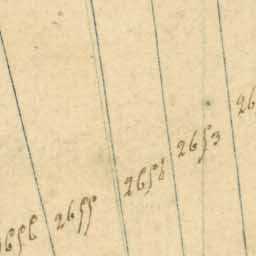 2656
2655
2654
2653
26